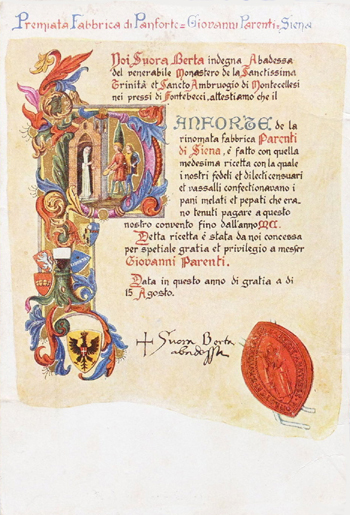 Premiata Fabbrica di Panforte = Giovanni Parenti = Siena
Noi Suora Berta indegna Abadessa
del venerabile Monastero de la Sanctissima
Trinità et Sancto Ambruogio di Montecellesi
nei pressi di Fontebecci, attestiamo che il
PANFORTE de la
rinomata fabbrica Parenti
di Siena, è fatto con quella
medesima ricetta con la quale
i nostri fedeli et dilecti censuari
et vassalli confectionavano i
pani melati et pepati che era-
no tenuti pagare a questo
nostro convento fino dall'anno MCC.
Detta ricetta è stata da noi concessa
per spetiale gratia et privilegio a messer
Giovanni Parenti.
Data in questo anno di gratia a dì
15 Agosto.
+ Suora Berta
abadessa